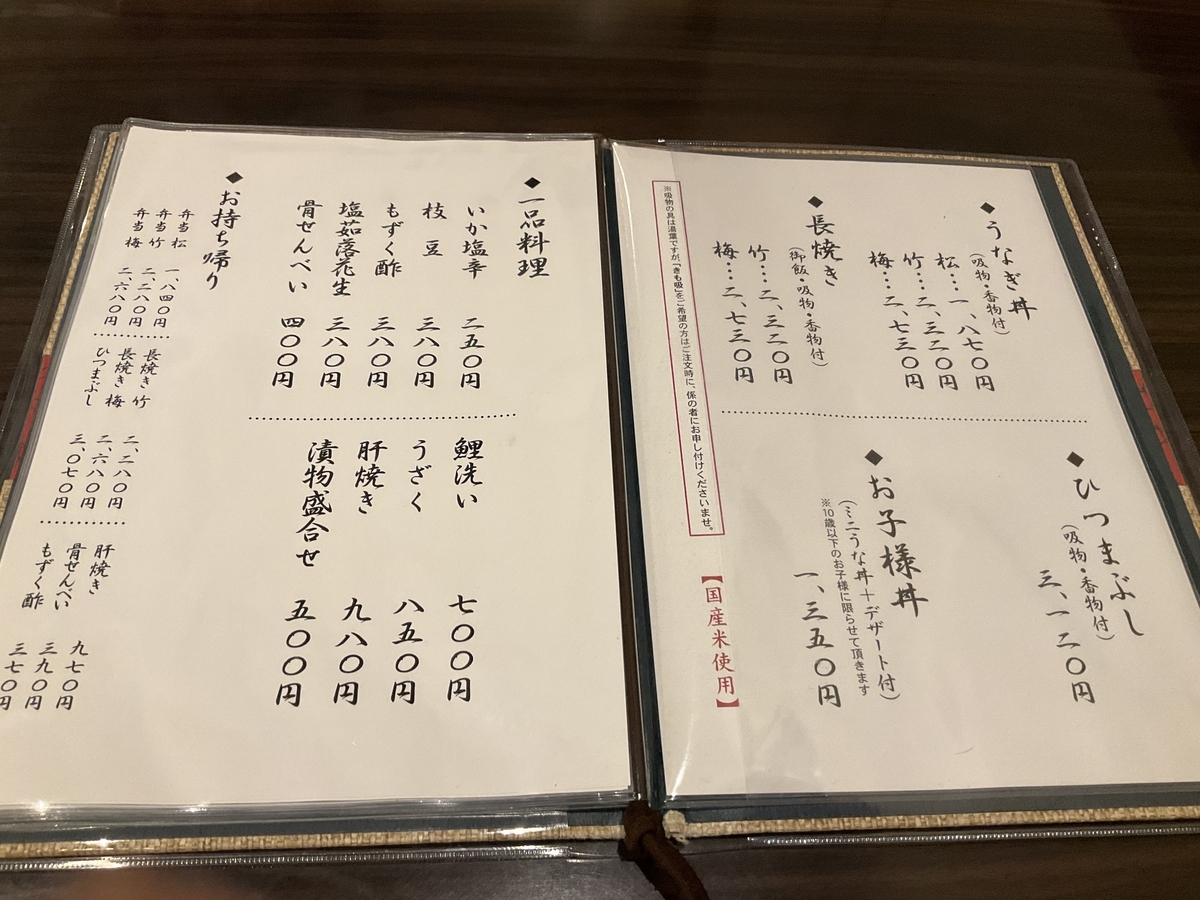 ◆うなぎ丼
(吸物・香物付)
松…一、八七〇円
竹…二、三二〇円
梅…二、七三〇円
◆長焼き
(御飯・吸物・香物付)
竹…二、三二〇円
梅…二、七三〇円
◆ひつまぶし
(吸物・香物付)
三、一二〇円
◆お子様丼
(ミニうな丼+デザート付)
※10歳以下のお子様に限らせて頂きます
一、三五〇円
※吸物の具は湯葉ですが、「きも吸」をご希望の方はご注文時に、係の者にお申し付けくださいませ。
【国産米使用】
◆一品料理
いか塩辛 二五〇円
枝豆 三八〇円
もずく酢 三八〇円
塩茹落花生 三八〇円
骨せんべい 四〇〇円
鯉洗い 七〇〇円
うざく 八五〇円
肝焼き 九八〇円
漬物盛合せ 五〇〇円
◆お持ち帰り
弁当 松 一、八四〇円
弁当 竹 二、二八〇円
弁当 梅 二、六八〇円
長焼き 竹 二、二八〇円
長焼き 梅 二、六八〇円
ひつまぶし 三、〇七〇円
肝焼き 九七〇円
骨せんべい 三九〇円
もずく酢 三七〇円